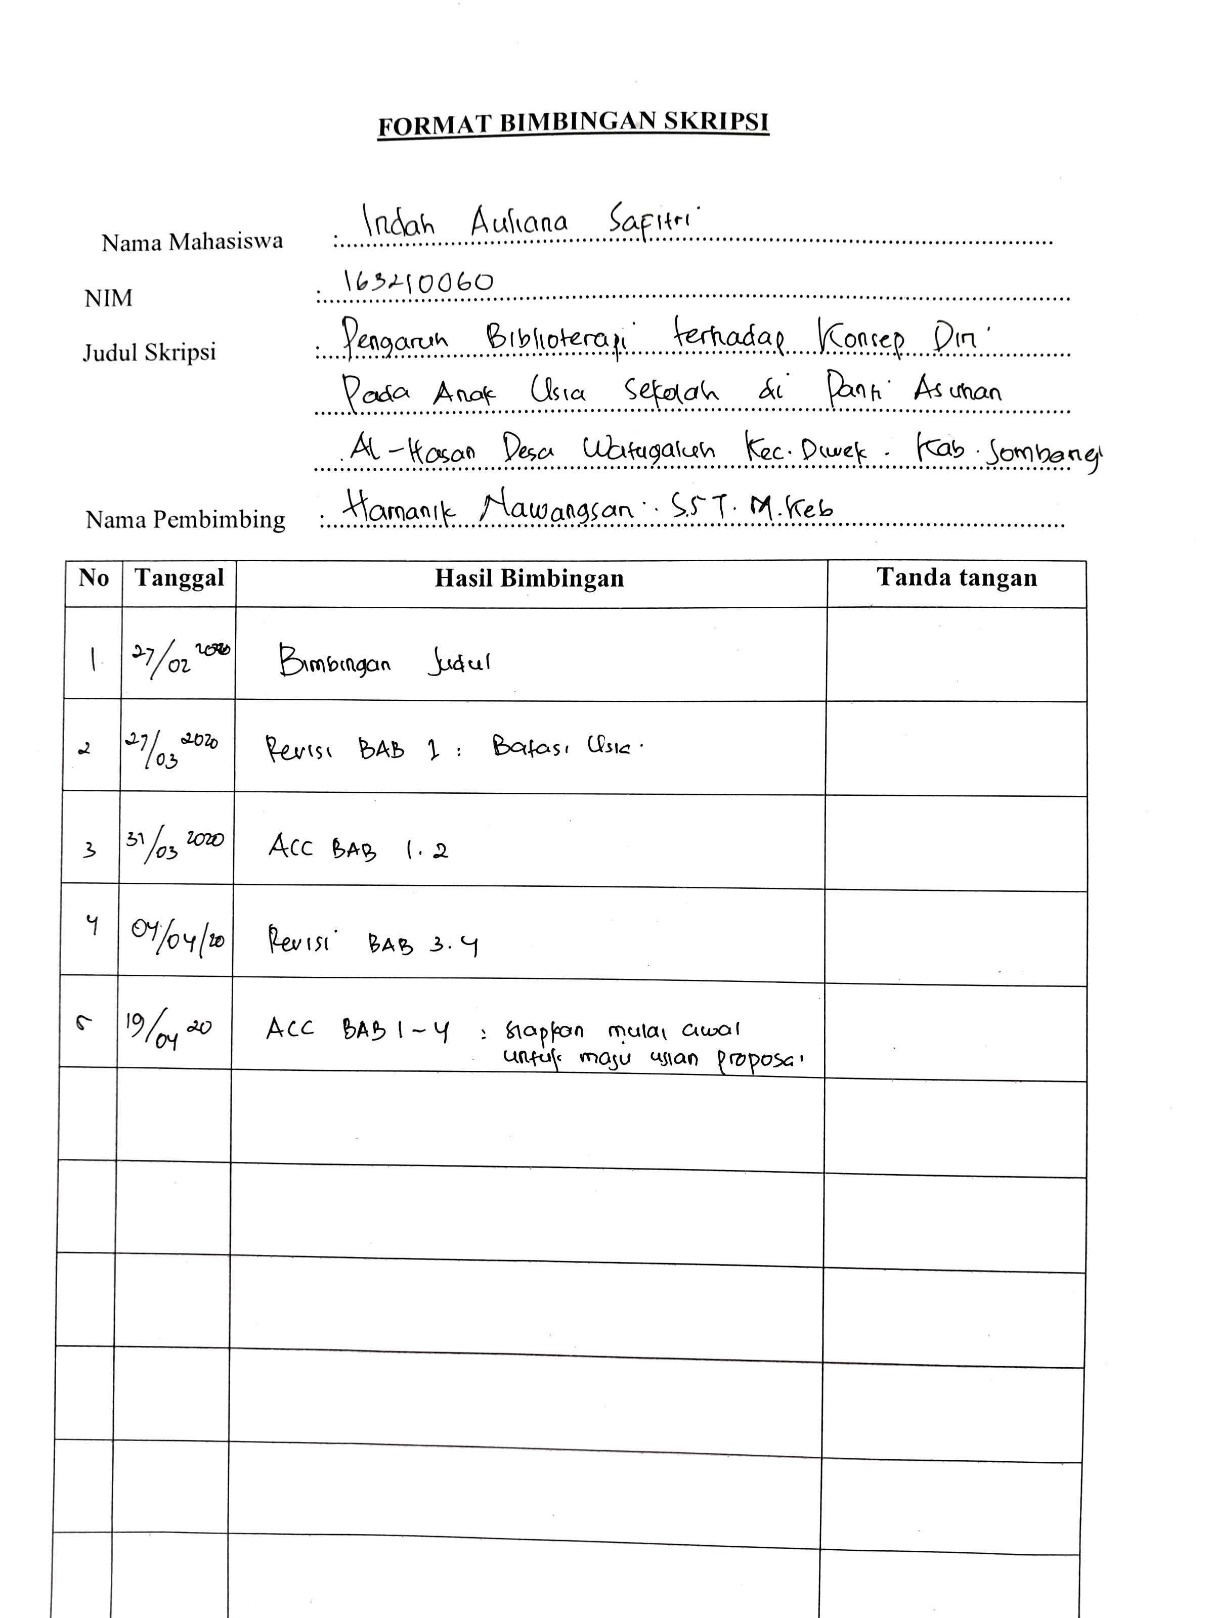 FORMAT BIMBINGAN SKRIPSI
Nama Mahasiswa : Indah Auliana Safitri
NIM : 163210060
Judul Skripsi : Pengaruh Biblioterapi terhadap Konsep Diri
Pada Anak Usia Sekolah di Panti Asuhan
Al-Hasan Desa Watugaluh Kec. Diwek. Kab. Jombang
Nama Pembimbing : Hamanik Nawangsari. S.ST. M.Keb
No Tanggal Hasil Bimbingan Tanda tangan
1. 27/02 2020 Bimbingan Judul
2 27/03 2020 Revisi BAB 1 : Batasi Usia.
3 31/03 2020 ACC BAB 1.2
4 04/04/20 Revisi BAB 3.4
5 19/04 20 ACC BAB 1-4 : siapkan mulai awal
untuk maju ujian proposal